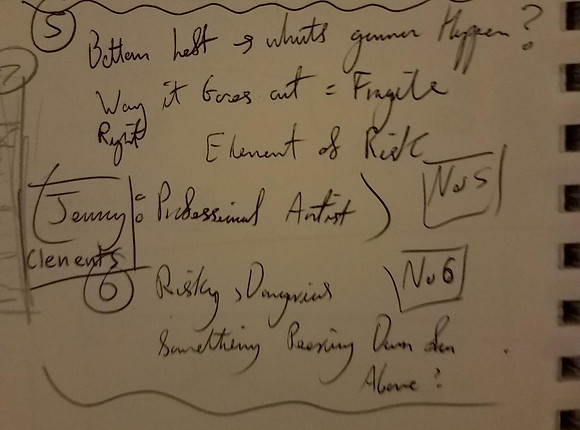 5 Bottom left → what's gonner Happen?
Way it Goes out = Fragile
Right Element of Risk
Jenny : Professional Artist) No 5
Clements
6 Risky, Dangerous No 6
Something Peering Down
Above?